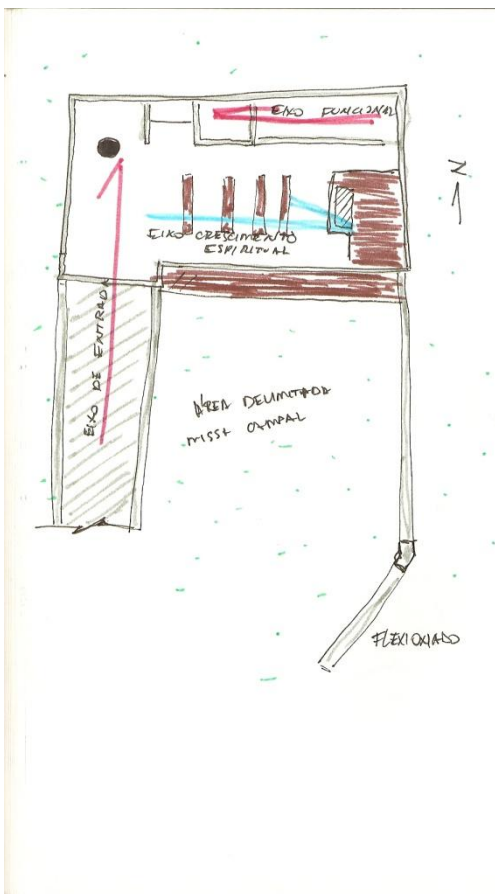 EIXO FUNCIONAL
N
EIXO CRESCIMENTO
ESPIRITUAL
EIXO DE ENTRADA
ÁREA DELIMITADA
MISSA CAMPAL
FLEXIONADO